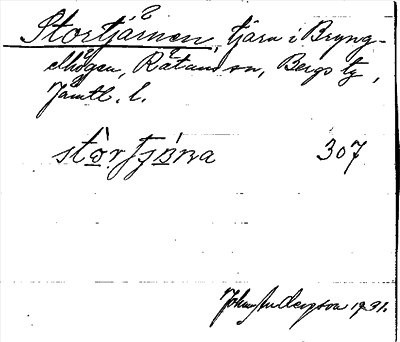 2
Stortjärnen, tjärn i Bryng-
elhögen, Rätans sn, Bergs tg,
Jämtl. l.
stòrtjὰna 307
Johan Anderson 1931.